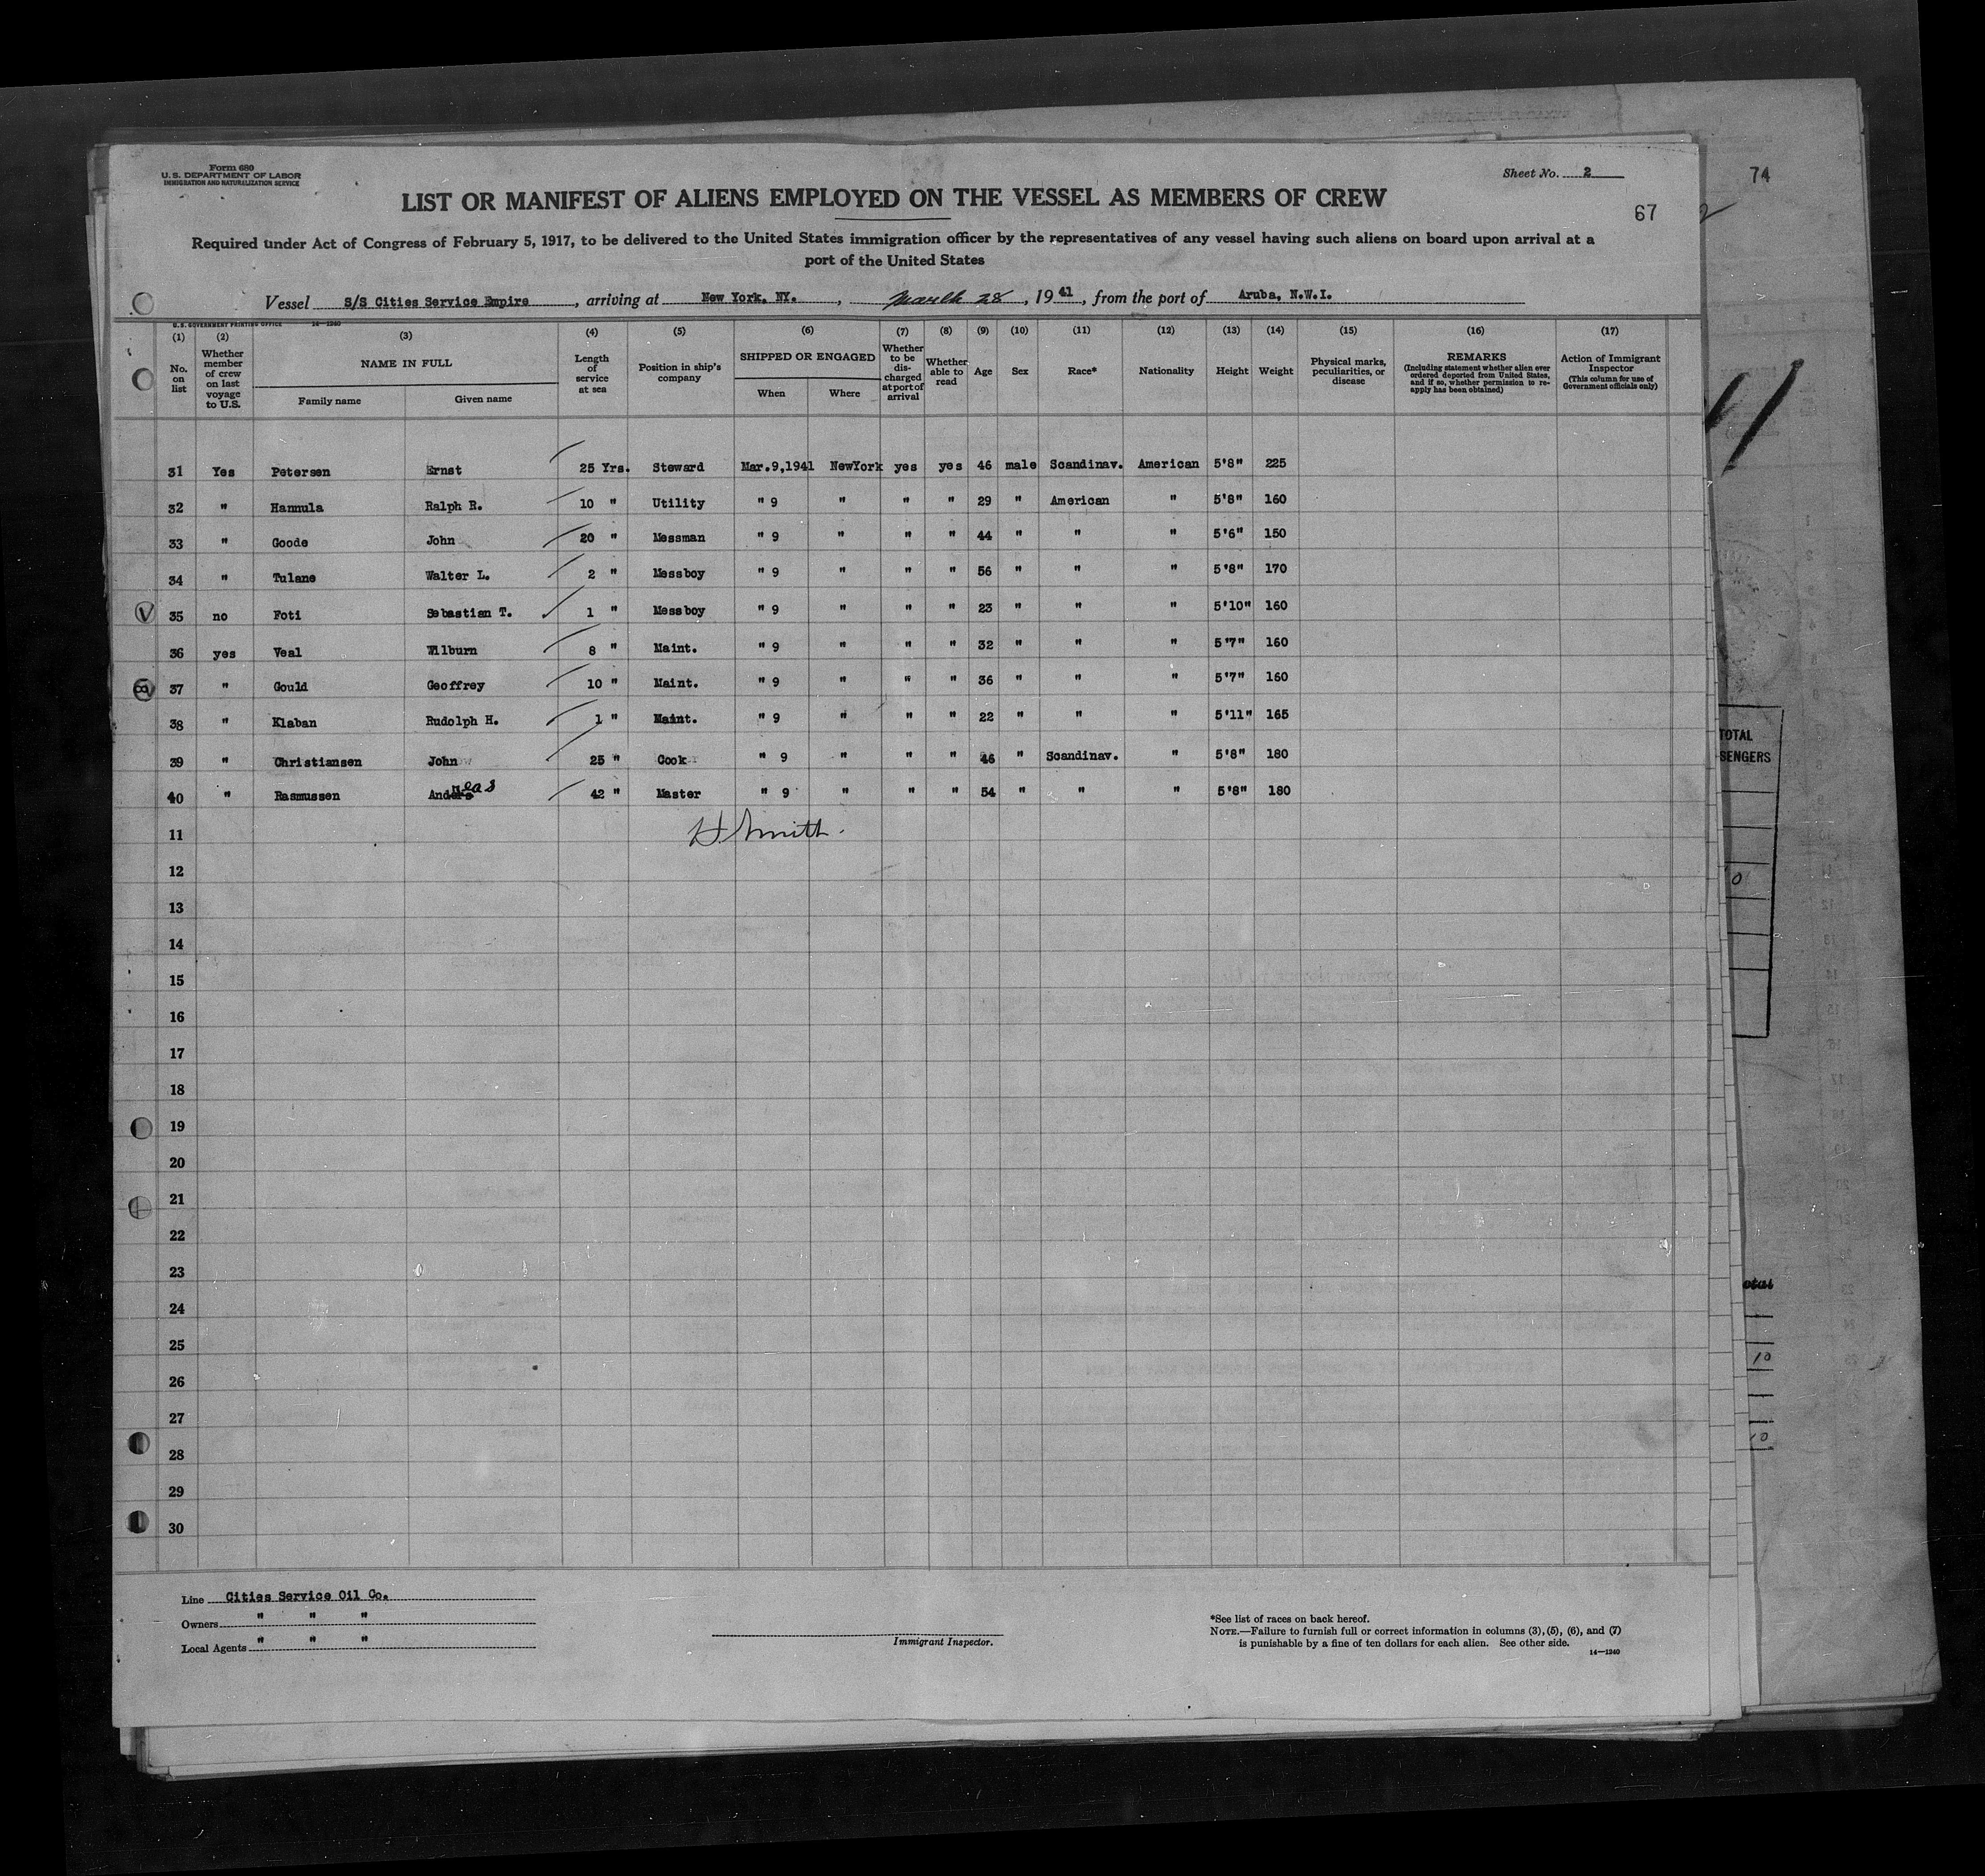 Form 680
U. S. DEPARTMENT OF LABOR
IMMIGRATION AND NATURALIZATION SERVICE
Sheet No. 2
74
67
LIST OR MANIFEST OF ALIENS EMPLOYED ON THE VESSEL AS MEMBERS OF CREW
Required under Act of Congress of February 5, 1917, to be delivered to the United States immigration officer by the representatives of any vessel having such aliens on board upon arrival at a
port of the United States
Vessel S/S Cities Service Empire, arriving at New York, NY., March 28, 1941, from the port of Aruba, N.W.I.
U. S. GOVERNMENT PRINTING OFFICE 14—1240
(1) (2) (3) (4) (5) (6) (7) (8) (9) (10) (11) (12) (13) (14) (15) (16) (17)
No. on list
Whether member of crew on last voyage to U.S.
NAME IN FULL
Family name
Given name
Length of service at sea
Position in ship's company
SHIPPED OR ENGAGED
When
Where
Whether to be discharged at port of arrival
Whether able to read
Age
Sex
Race*
Nationality
Height
Weight
Physical marks, peculiarities, or disease
REMARKS
(Including statement whether alien ever ordered deported from United States, and if so, whether permission to reapply has been obtained)
Action of Immigrant Inspector
(This column for use of Government officials only)
31 Yes Petersen Ernst 25 Yrs. Steward Mar.9,1941 NewYork yes yes 46 male Scandinav. American 5'8" 225
32 " Hannula Ralph R. 10 " Utility " 9 " " " 29 " American " 5'8" 160
33 " Goode John 20 " Messman " 9 " " " 44 " " " 5'6" 150
34 " Tulane Walter L. 2 " Messboy " 9 " " " 56 " " " 5'8" 170
V 35 no Foti Sebastian T. 1 " Messboy " 9 " " " 23 " " " 5'10" 160
36 yes Veal Wilburn 8 " Maint. " 9 " " " 32 " " " 5'7" 160
37 " Gould Geoffrey 10 " Maint. " 9 " " " 36 " " " 5'7" 160
38 " Klaban Rudolph H. 1 " Maint. " 9 " " " 22 " " " 5'11" 165
39 " Christiansen John 25 " Cook " 9 " " " 46 " Scandinav. " 5'8" 180
40 " Rasmussen Andreas 42 " Master " 9 " " " 54 " " " 5'8" 180
11 H. Smith.
12
13
14
15
16
17
18
19
20
21
22
23
24
25
26
27
28
29
30
TOTAL
SENGERS
0
otal
10
10
Line Cities Service Oil Co.
Owners " " "
Local Agents " " "
Immigrant Inspector.
*See list of races on back hereof.
NOTE.—Failure to furnish full or correct information in columns (3), (5), (6), and (7)
is punishable by a fine of ten dollars for each alien. See other side.
14—1240